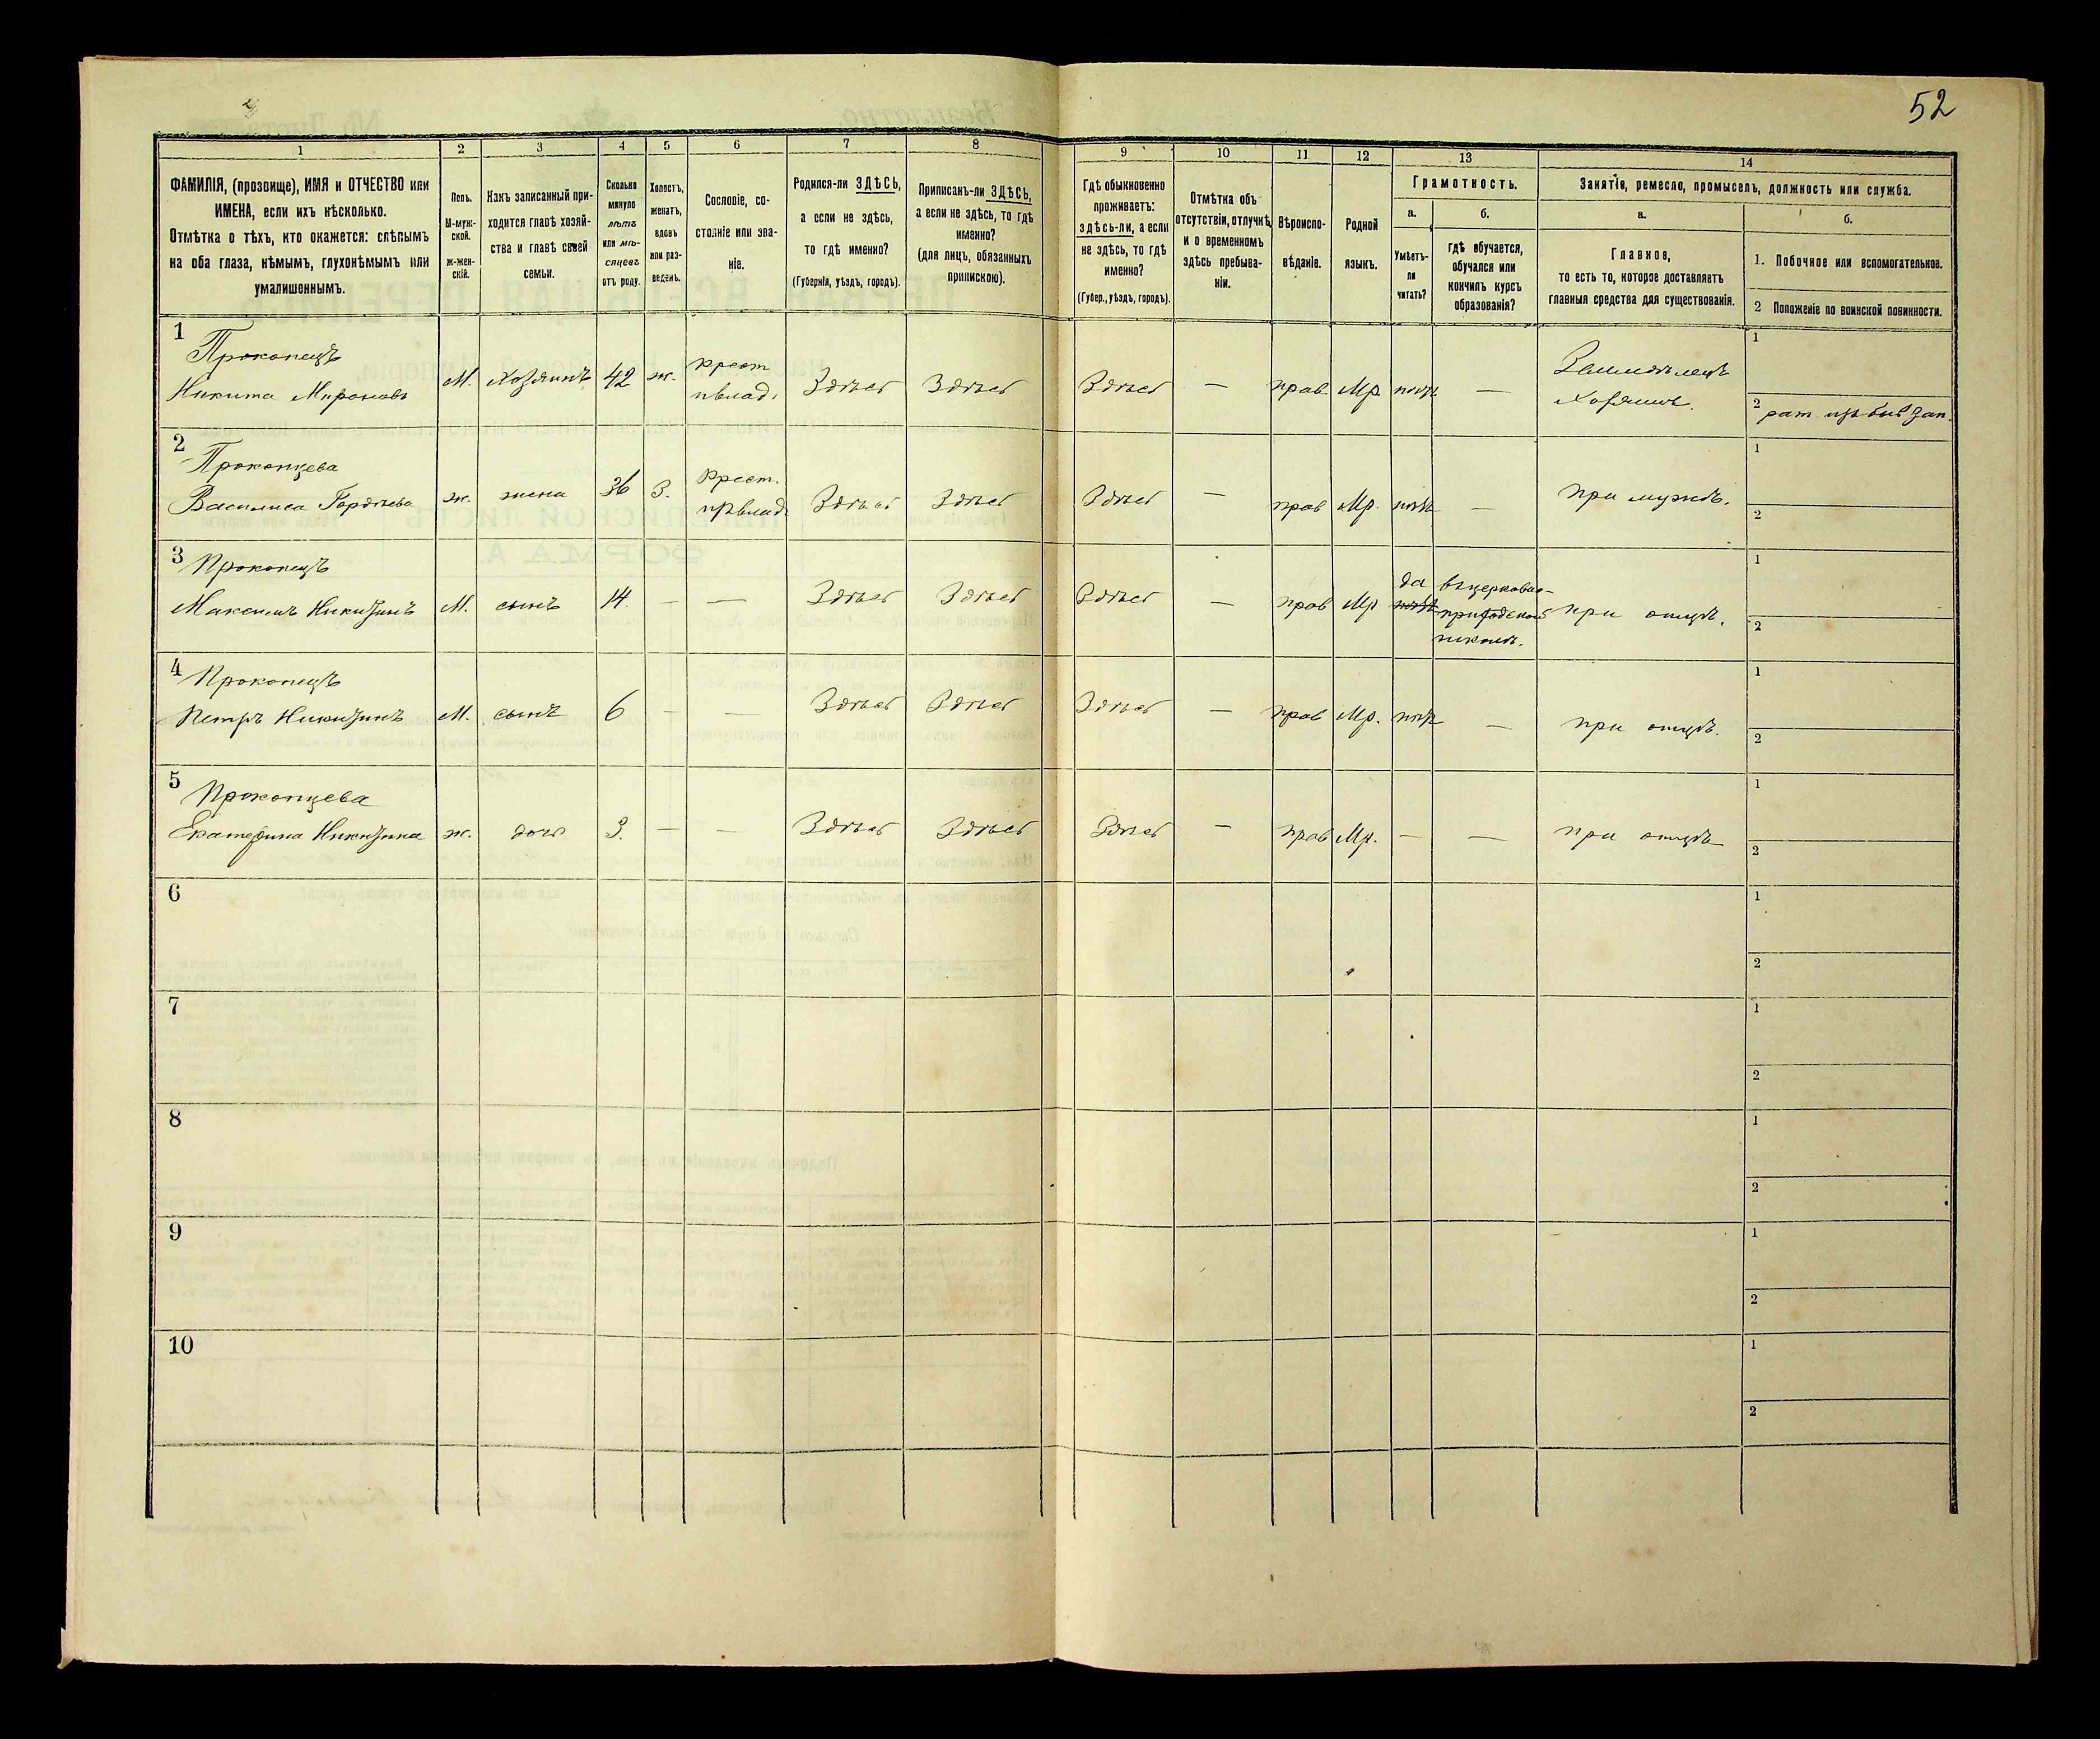 52
1 2 3 4 5 6 7 8 9 10 11 12 13 14
ФАМИЛІЯ, (прозвище), ИМЯ и ОТЧЕСТВО или
ИМЕНА, если ихъ нѣсколько.
Отмѣтка о тѣхъ, кто окажется: слѣпымъ
на оба глаза, нѣмымъ, глухонѣмымъ или
умалишеннымъ.
Полъ.
М-муж-
ской.
ж-жен-
скій.
Какъ записанный при-
ходится главѣ хозяй-
ства и главѣ своей
семьи.
Сколько
минуло
лѣтъ
или мѣ-
сяцевъ
отъ роду.
Холостъ,
женатъ,
вдовъ
или раз-
веденъ.
Сословіе, со-
стояніе или зва-
ніе.
Родился-ли ЗДѢСЬ,
а если не здѣсь,
то гдѣ именно?
(Губернія, уѣздъ, городъ).
Приписанъ-ли ЗДѢСЬ,
а если не здѣсь, то гдѣ
именно?
(для лицъ, обязанныхъ
припискою).
Гдѣ обыкновенно
проживаетъ:
здѣсь-ли, а если
не здѣсь, то гдѣ
именно?
(Губер., уѣздъ, городъ).
Отмѣтка объ
отсутствіи, отлучкѣ,
и о временномъ
здѣсь пребыва-
ніи.
Вѣроиспо-
вѣданіе.
Родной
языкъ.
Грамотность.
а.
Умѣетъ-
ли
читать?
б.
гдѣ обучается,
обучался или
кончилъ курсъ
образованія?
Занятіе, ремесло, промыселъ, должность или служба.
а.
Главное,
то есть то, которое доставляетъ
главныя средства для существованія.
б.
1. Побочное или вспомогательное.
2 Положеніе по воинской повинности.
1 Прокопецъ крест Земледѣлецъ 1
Никита Мироновъ М. хозяинъ 42 ж. Здѣсь Здѣсь Здѣсь — прав. Мр. нѣтъ — Хозяинъ. 2
2 Прокопцева крест. 1
Василиса Гордѣева ж. жена 36 З. Здѣсь Здѣсь Здѣсь — прав Мр. нѣтъ — при мужѣ. 2
3 Прокопецъ да въ церковно- 1
Максимъ Никитинъ М. сынъ 14. — — Здѣсь Здѣсь Здѣсь — прав Мр нѣтъ приходской при отцѣ. 2
школѣ.
4 Прокопецъ 1
Петръ Никитинъ М. сынъ 6 — — Здѣсь Здѣсь Здѣсь — прав Мр. нѣтъ — при отцѣ. 2
5 Прокопцева 1
Екатерина Никитина ж. дочь 3. — — Здѣсь Здѣсь Здѣсь — прав Мр. — — при отцѣ 2
6 1
2
7 1
2
8 1
2
9 1
2
10 1
2